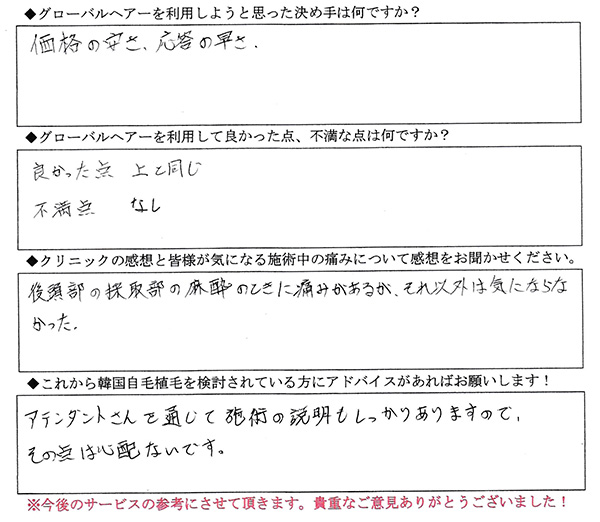 ◆グローバルヘアーを利用しようと思った決め手は何ですか？
価格の安さ、応答の早さ.
◆グローバルヘアーを利用して良かった点、不満な点は何ですか？
良かった点　上と同じ
不満点　なし
◆クリニックの感想と皆様が気になる施術中の痛みについて感想をお聞かせください。
後頭部の採取部の麻酔のときに痛みがあるが、それ以外は気にならな
かった.
◆これから韓国自毛植毛を検討されている方にアドバイスがあればお願いします！
アテンダントさんを通じて施術の説明もしっかりありますので、
その点は心配ないです。
※今後のサービスの参考にさせて頂きます。貴重なご意見ありがとうございました！